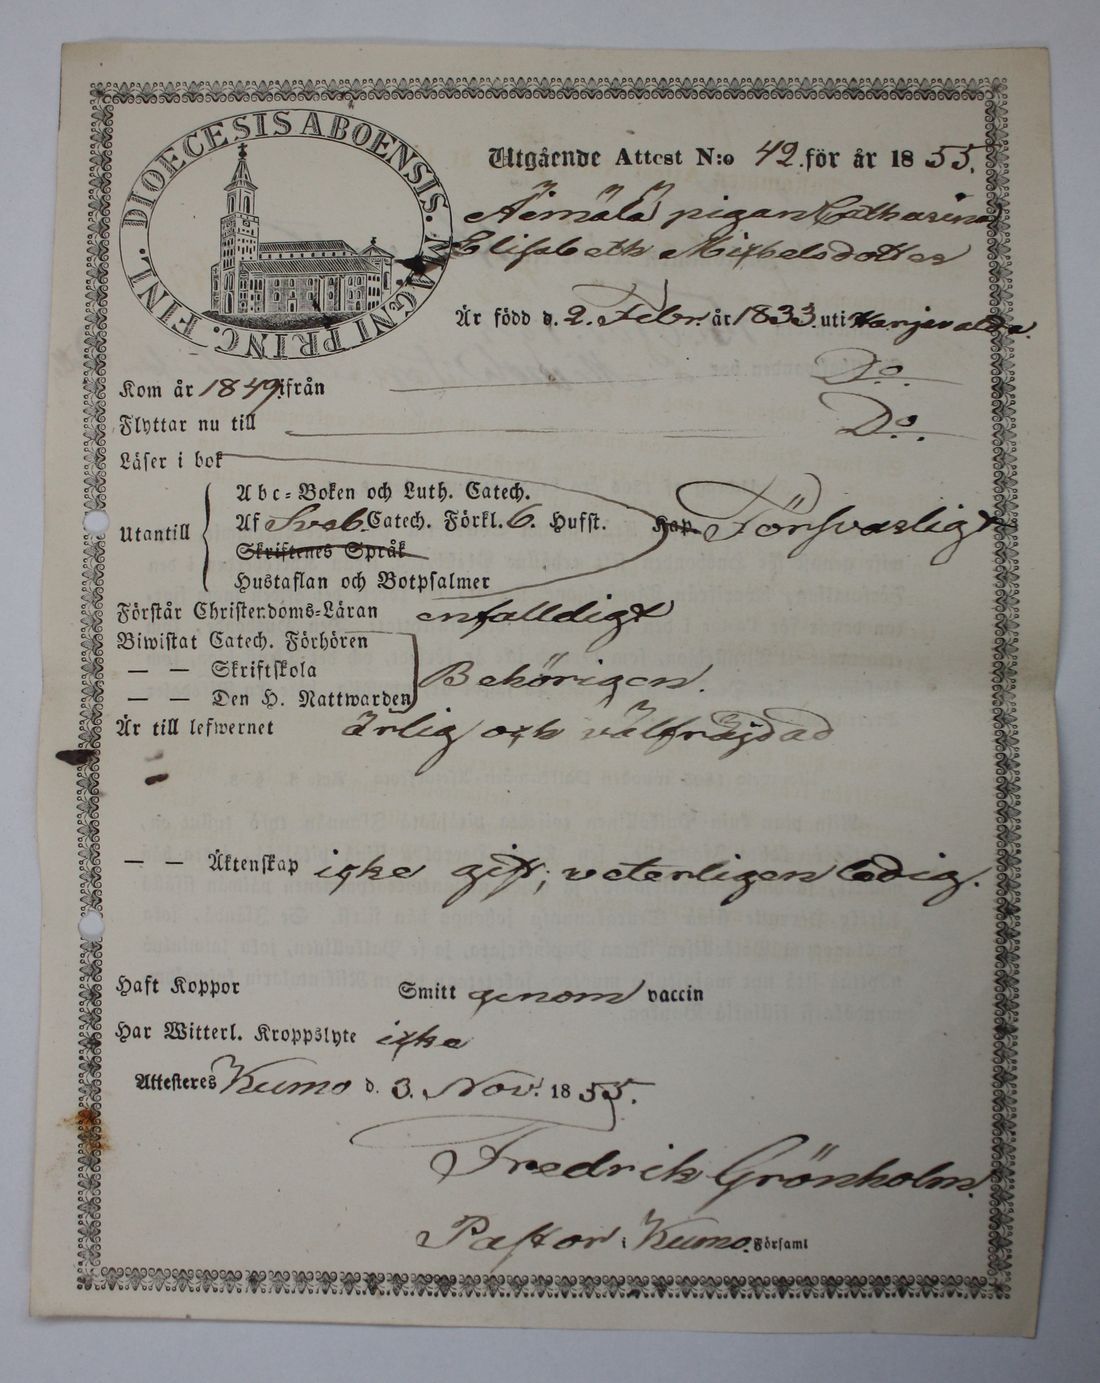 DIOECESIS ABOENSIS. MAGNI PRINC. FINL.
Utgående Attest N:o 42. för år 1855.
Äimälä pigan Catharina
Elisabeth Michelsdotter
Är född d. 2. Febr. år 1833. uti Harjavalda.
Kom år 1849. ifrån Do.
Flyttar nu till Do.
Läser i bok
Abc-Boken och Luth. Catech.
Utantill Af Sveb. Catech. Förkl. 6. Hufst. hap. Försvarligt
Skriftenes Språk
Hustaflan och Botpsalmer
Förstår Christendoms-Läran enfalldigt
Biwistat Catech. Förhören
— — Skriftskola Behörigen.
— — Den H. Nattwarden
Är till lefwernet ärlig och välfräjdad
— — Äktenskap icke gift; veterligen ledig.
Haft Koppor Smitt genom vaccin
Har Witterl. Kroppslyte icke
Attesteres Kumo d. 3. Nov. 1855.
Fredrik Grönholm.
Pastor i Kumo. Församl